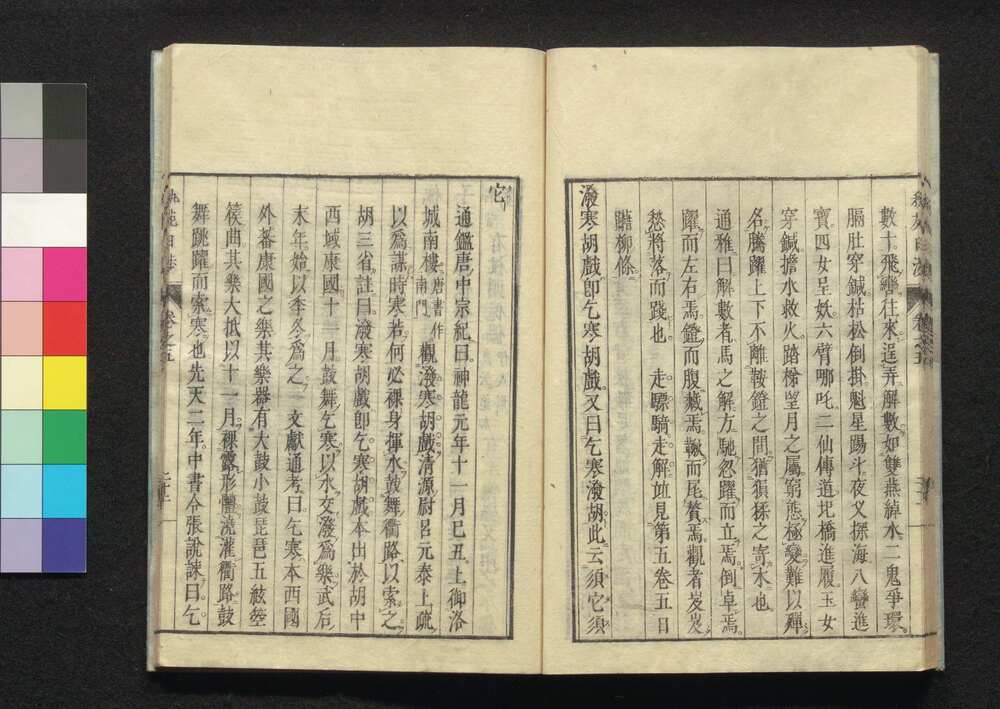 數十飛轡往來。逞弄解數。如雙燕綽水二鬼爭環。
膈肚穿鍼。枯松倒掛。魁星踢斗。夜叉探海。八蠻進
寶。四女呈妖。六臂哪吒。二仙傳道。圯橋進履。玉女
穿鍼。擔水救火。踏梯望月之屬。窮態極變難以殫
名。騰躍上下不離鞍鐙之間。猶猿猱之寄木也
通雅曰解數者馬之解。方馳忽躍而立焉。倒卓焉。
躍而左右焉。鐙而腹藏焉。鞦而尾贅焉。觀者岌岌
愁將落而踐也。 走驃騎走解竝見第五卷五日
躤柳條
潑寒胡戲卽乞寒胡戲。又曰乞寒潑胡此云須它須
它
通鑑唐中宗紀曰。神龍元年十一月己丑。上御洛
城南樓唐書作南門觀潑寒胡戲淸源尉呂元泰上疏
以爲謀時寒若。何必裸身揮水。鼓舞衢路以索之
胡三省註曰。潑寒胡戲卽乞寒胡戲本出於胡中
西域康國十一月鼓舞乞寒。以水交潑爲樂武后
末年。始以季冬爲之 文獻通考曰乞寒本西國
外蕃康國之樂其樂器有大鼓小鼓琵琶五絃箜
篌曲其樂大抵以十一月。裸露形體澆灌衢路鼓
舞跳躍而索寒也先天二年。中書令張說諫曰。乞
卷之五